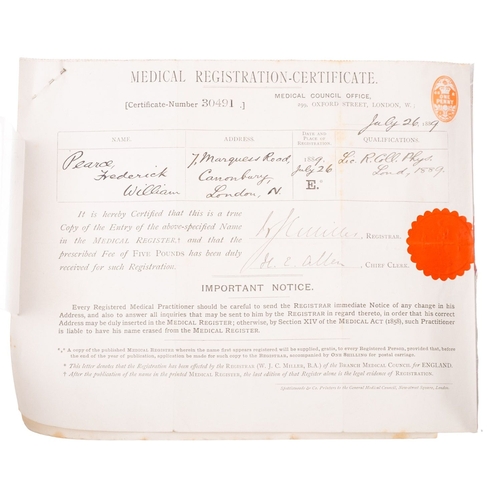 MEDICAL REGISTRATION-CERTIFICATE.
[Certificate-Number 30491.]
MEDICAL COUNCIL OFFICE,
299, OXFORD STREET, LONDON, W.
ONE PENNY
July 26 1889
NAME.
ADDRESS.
DATE AND PLACE OF REGISTRATION.
QUALIFICATIONS.
Pearce, Frederick William
7, Marquess Road, Canonbury, London, N.
1889 July 26 E.*
Lic. R. Coll. Phys. Lond., 1889.
It is hereby Certified that this is a true
Copy of the Entry of the above-specified Name
in the MEDICAL REGISTER; and that the
prescribed Fee of FIVE POUNDS has been duly
received for such Registration.
REGISTRAR.
H. C. Allen
CHIEF CLERK.
IMPORTANT NOTICE.
Every Registered Medical Practitioner should be careful to send the REGISTRAR immediate Notice of any change in his
Address, and also to answer all inquiries that may be sent to him by the REGISTRAR in regard thereto, in order that his correct
Address may be duly inserted in the MEDICAL REGISTER; otherwise, by Section XIV of the MEDICAL ACT (1858), such Practitioner
is liable to have his name erased from the MEDICAL REGISTER.
A copy of the published MEDICAL REGISTER wherein the name first appears registered will be supplied, gratis, to every Registered Person, provided that, before
the end of the year of publication, application be made for such copy to the REGISTRAR, accompanied by ONE SHILLING for postal carriage.
* This letter denotes that the Registration has been effected by the REGISTRAR (W. J. C. MILLER, B.A.) of the BRANCH MEDICAL COUNCIL for ENGLAND.
† After the publication of the name in the printed MEDICAL REGISTER, the last edition of that Register alone is the legal evidence of REGISTRATION.
Spottiswoode & Co. Printers to the General Medical Council, New-street Square, London.